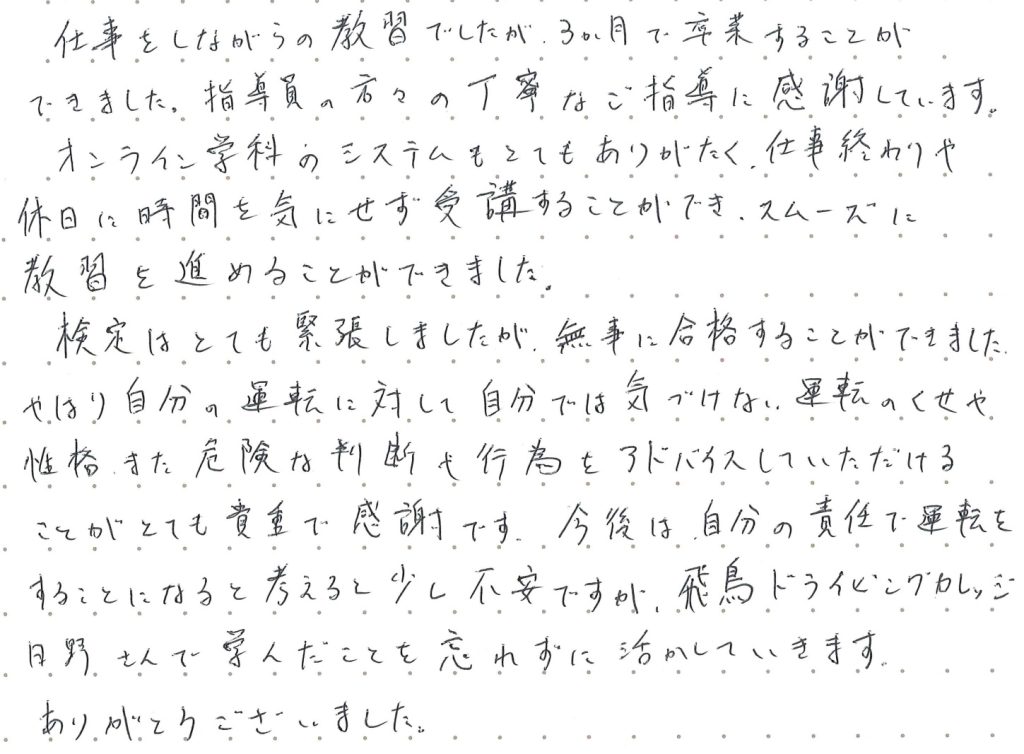 仕事をしながらの教習でしたが、3か月で卒業することが
できました。指導員の方々の丁寧なご指導に感謝しています。
オンライン学科のシステムもとてもありがたく、仕事終わりや
休日に時間を気にせず受講することができ、スムーズに
教習を進めることができました。
検定はとても緊張しましたが、無事に合格することができました。
やはり自分の運転に対して自分では気づけない運転のくせや
性格、また危険な判断や行為をアドバイスしていただける
ことがとても貴重で感謝です。今後は、自分の責任で運転を
することになると考えると少し不安ですが、飛鳥ドライビングカレッジ
日野さんで学んだことを忘れずに活かしていきます。
ありがとうございました。